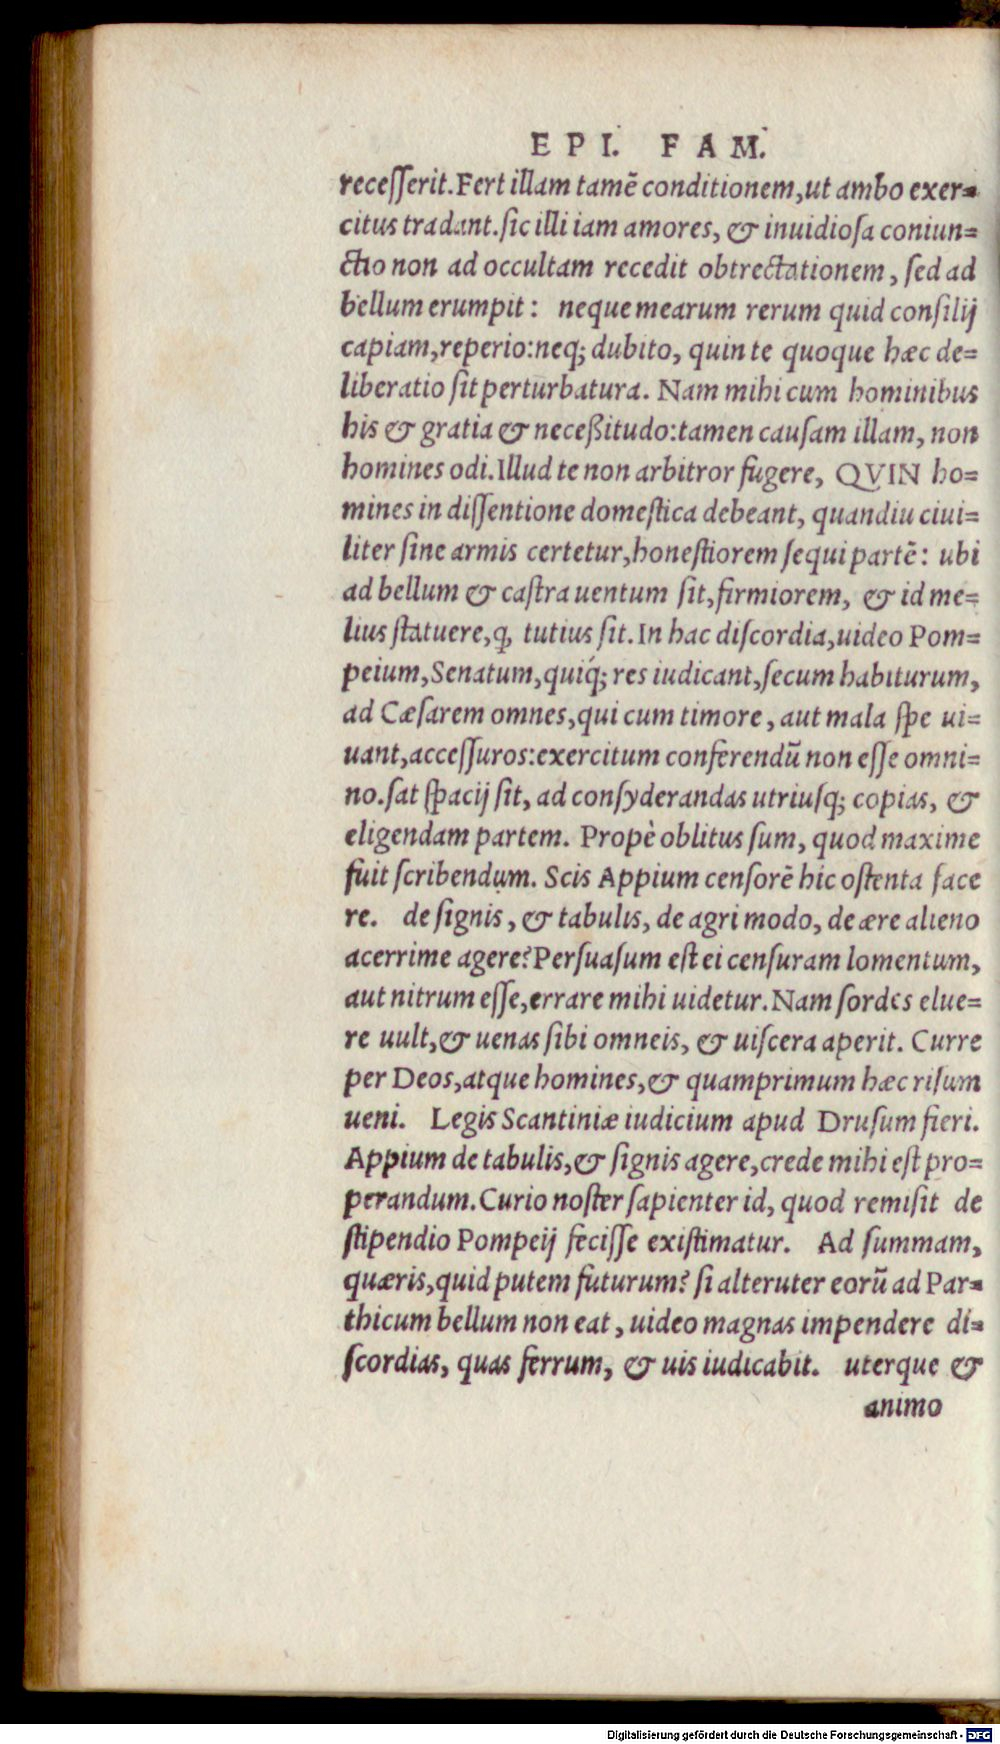 EPI. FAM.
receſſerit. Fert illam tamē conditionem, ut ambo exer-
citus tradant. ſic illi iam amores, & inuidioſa coniun-
ctio non ad occultam recedit obtrectationem, ſed ad
bellum erumpit: neque mearum rerum quid conſilij
capiam, reperio: neq; dubito, quin te quoque hæc de-
liberatio ſit perturbatura. Nam mihi cum hominibus
his & gratia & neceßitudo: tamen cauſam illam, non
homines odi. Illud te non arbitror fugere, QVIN ho-
mines in diſſentione domeſtica debeant, quandiu ciui-
liter ſine armis certetur, honeſtiorem ſequi partē: ubi
ad bellum & caſtra uentum ſit, firmiorem, & id me-
lius ſtatuere, ꝙ tutius ſit. In hac diſcordia, uideo Pom-
peium, Senatum, quiq́; res iudicant, ſecum habiturum,
ad Cæſarem omnes, qui cum timore, aut mala ſpe ui-
uant, acceſſuros: exercitum conferendū non eſſe omni-
no. ſat ſpacij ſit, ad conſyderandas utriuſq; copias, &
eligendam partem. Propè oblitus ſum, quod maxime
fuit ſcribendum. Scis Appium cenſorē hic oſtenta face
re. de ſignis, & tabulis, de agri modo, de ære alieno
acerrime agere? Perſuaſum eſt ei cenſuram lomentum,
aut nitrum eſſe, errare mihi uidetur. Nam ſordes elue-
re uult, & uenas ſibi omneis, & uiſcera aperit. Curre
per Deos, atque homines, & quamprimum hæc riſum
ueni. Legis Scantiniæ iudicium apud Druſum fieri.
Appium de tabulis, & ſignis agere, crede mihi eſt pro-
perandum. Curio noſter ſapienter id, quod remiſit de
ſtipendio Pompeij feciſſe exiſtimatur. Ad ſummam,
quæris, quid putem futurum? ſi alteruter eorū ad Par-
thicum bellum non eat, uideo magnas impendere di-
ſcordias, quas ferrum, & uis iudicabit. uterque &
animo
Digitalisierung gefördert durch die Deutsche Forschungsgemeinschaft - DFG